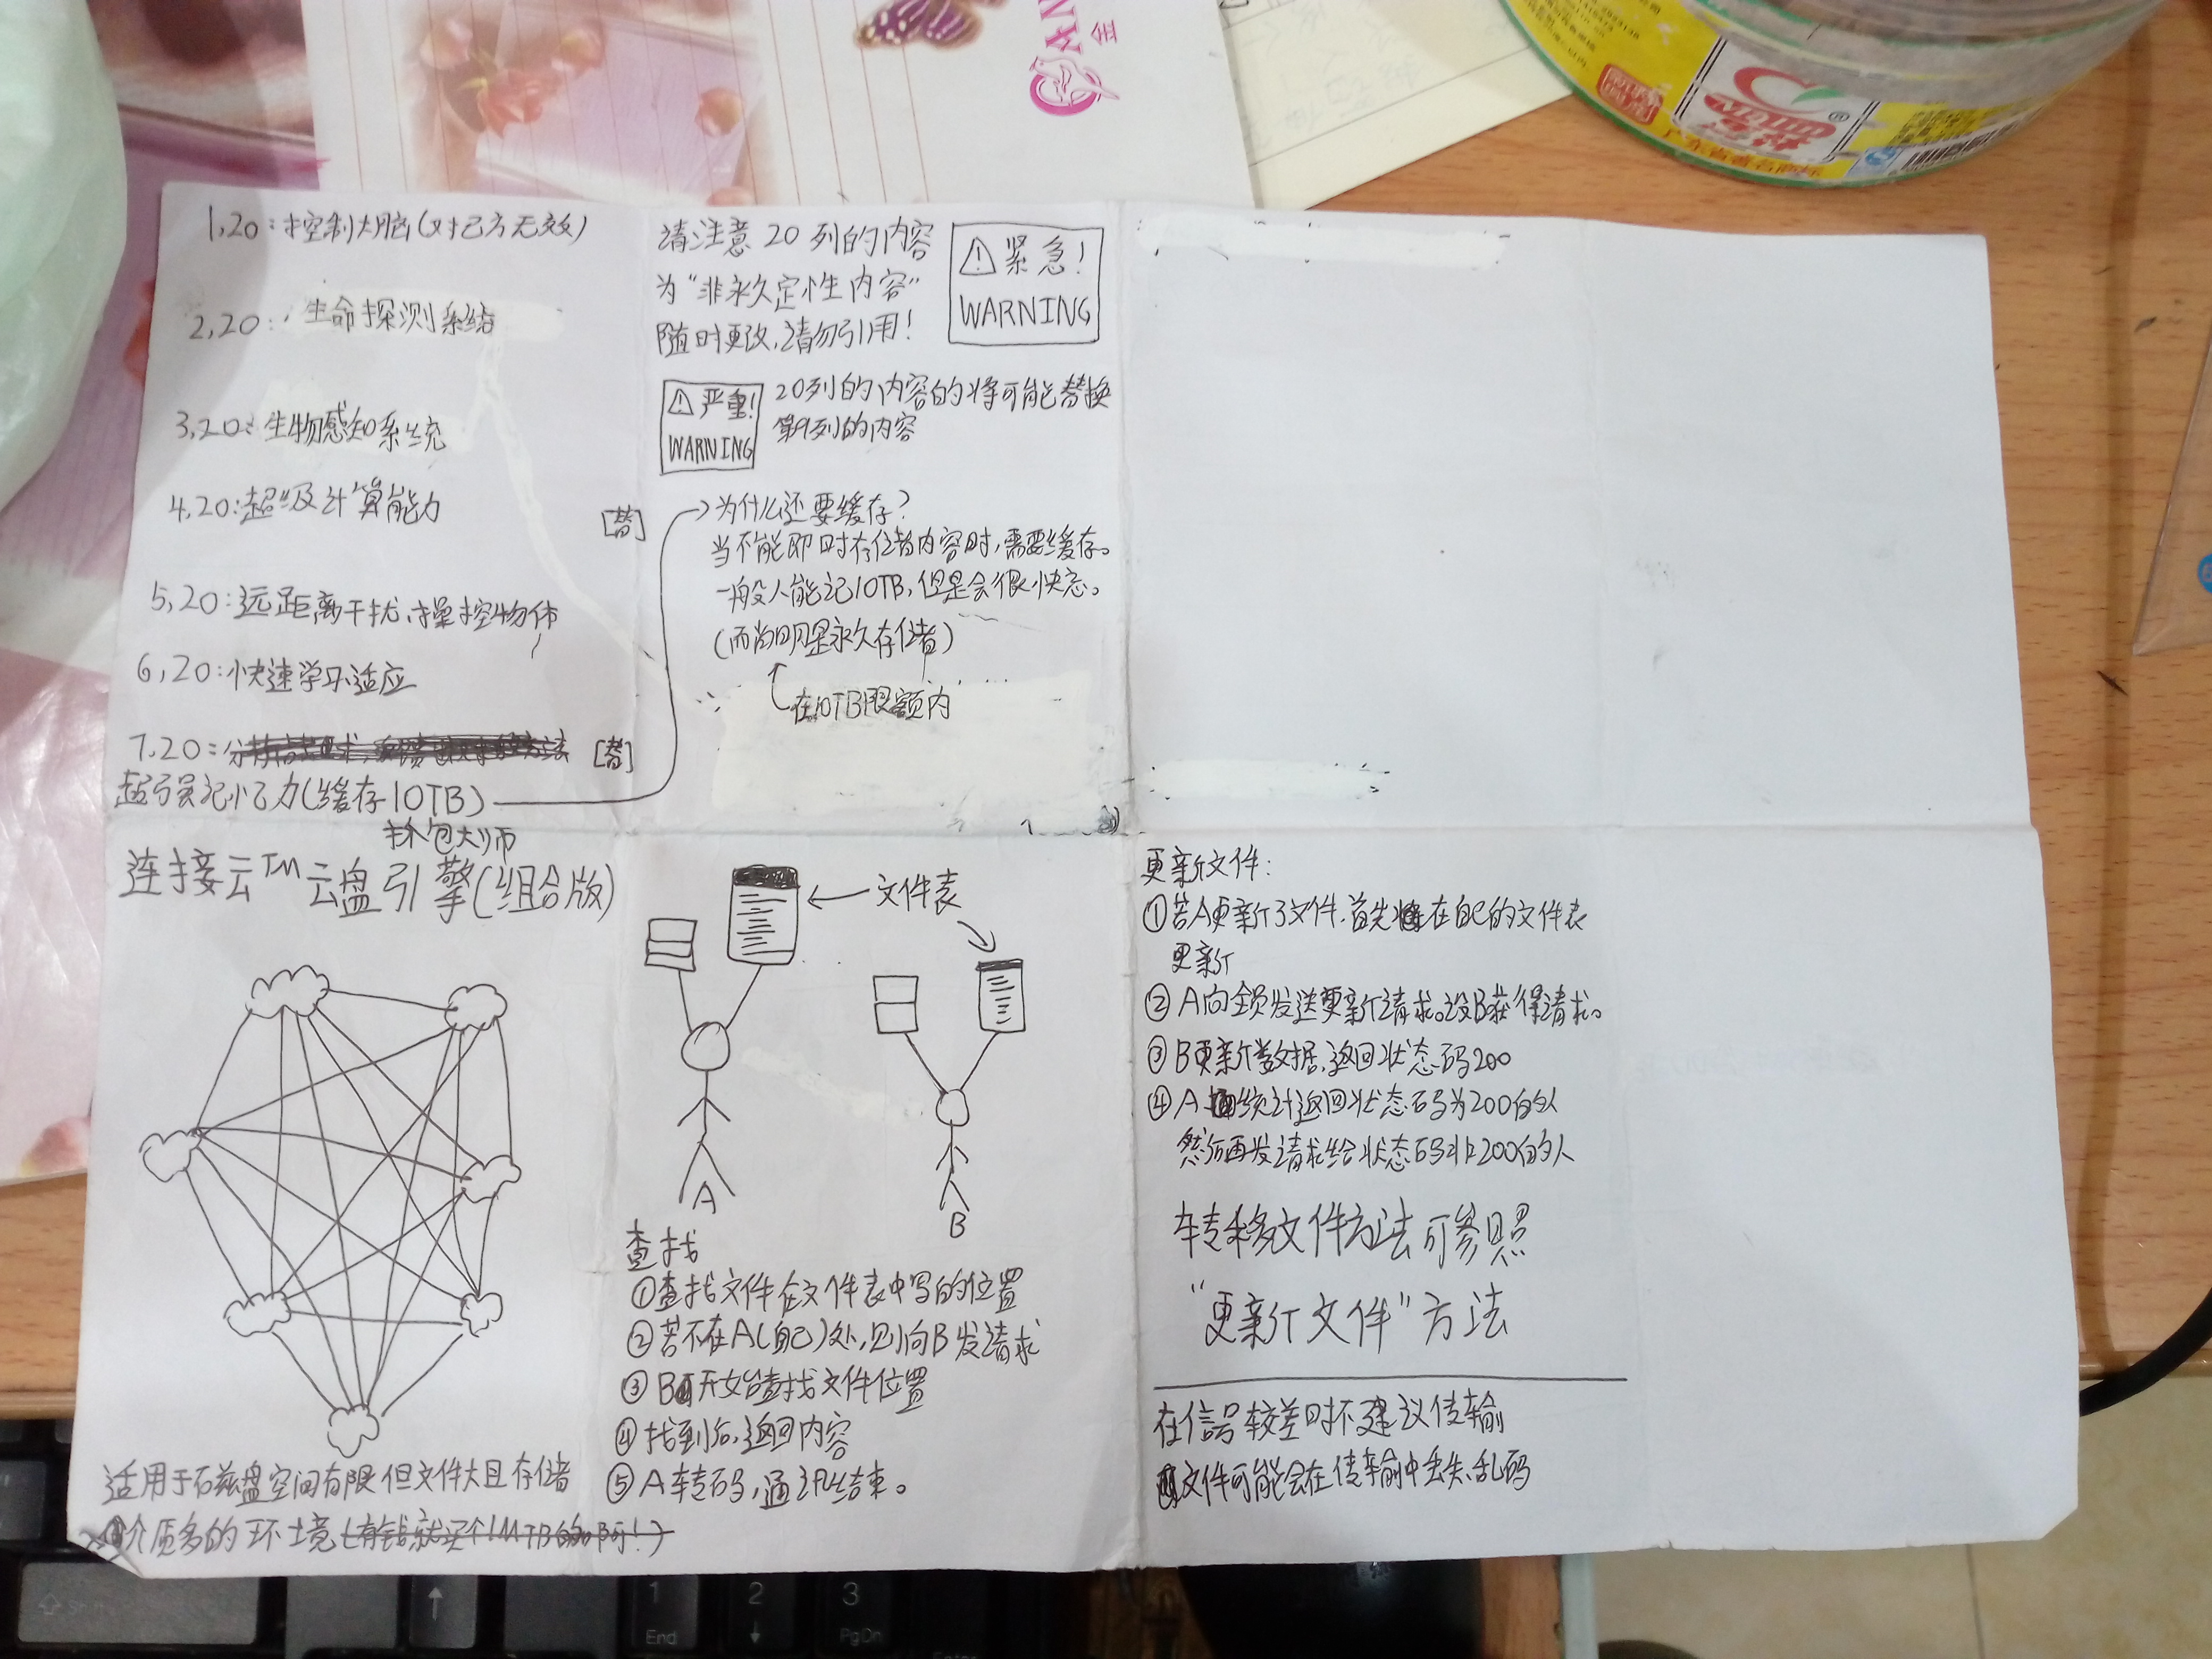 1,20:控制大脑(对己方无效)
2,20:生命探测系统
3,20:生物感知系统
4,20:超级计算能力 [替]
5,20:远距离干扰、操控物体
6,20:快速学习适应
7,20: [替]
超强记忆力(缓存10TB)
请注意 20 列的内容
为“非永久定性内容”
随时更改,请勿引用!
⚠紧急!
WARNING
⚠严重!
WARNING
20列的内容的将可能替换
第9列的内容
为什么还要缓存?
当不能即时存储内容时,需要缓存。
一般人能记10TB,但是会很快忘。
(而尚明是永久存储)
在10TB限额内
抹包大师
连接云TM云盘引擎(组合版)
适用于磁盘空间有限但文件大且存储
介质多的环境(有钱就买个1MTB的啊!)
文件表
A
B
查找
①查找文件在文件表中写的位置
②若不在A(自己)处,则向B发请求
③B开始查找文件位置
④找到后,返回内容
⑤A转码,通讯结束。
更新文件:
①若A更新了文件,首先在自己的文件表
更新
②A向全员发送更新请求。设B获得请求。
③B更新数据,返回状态码200
④A统计返回状态码为200的人
然后再发请求给状态码非200的人
转移文件方法可参照
“更新文件”方法
在信号较差时不建议传输
文件可能会在传输中丢失、乱码
End
1
2
3
PgDn